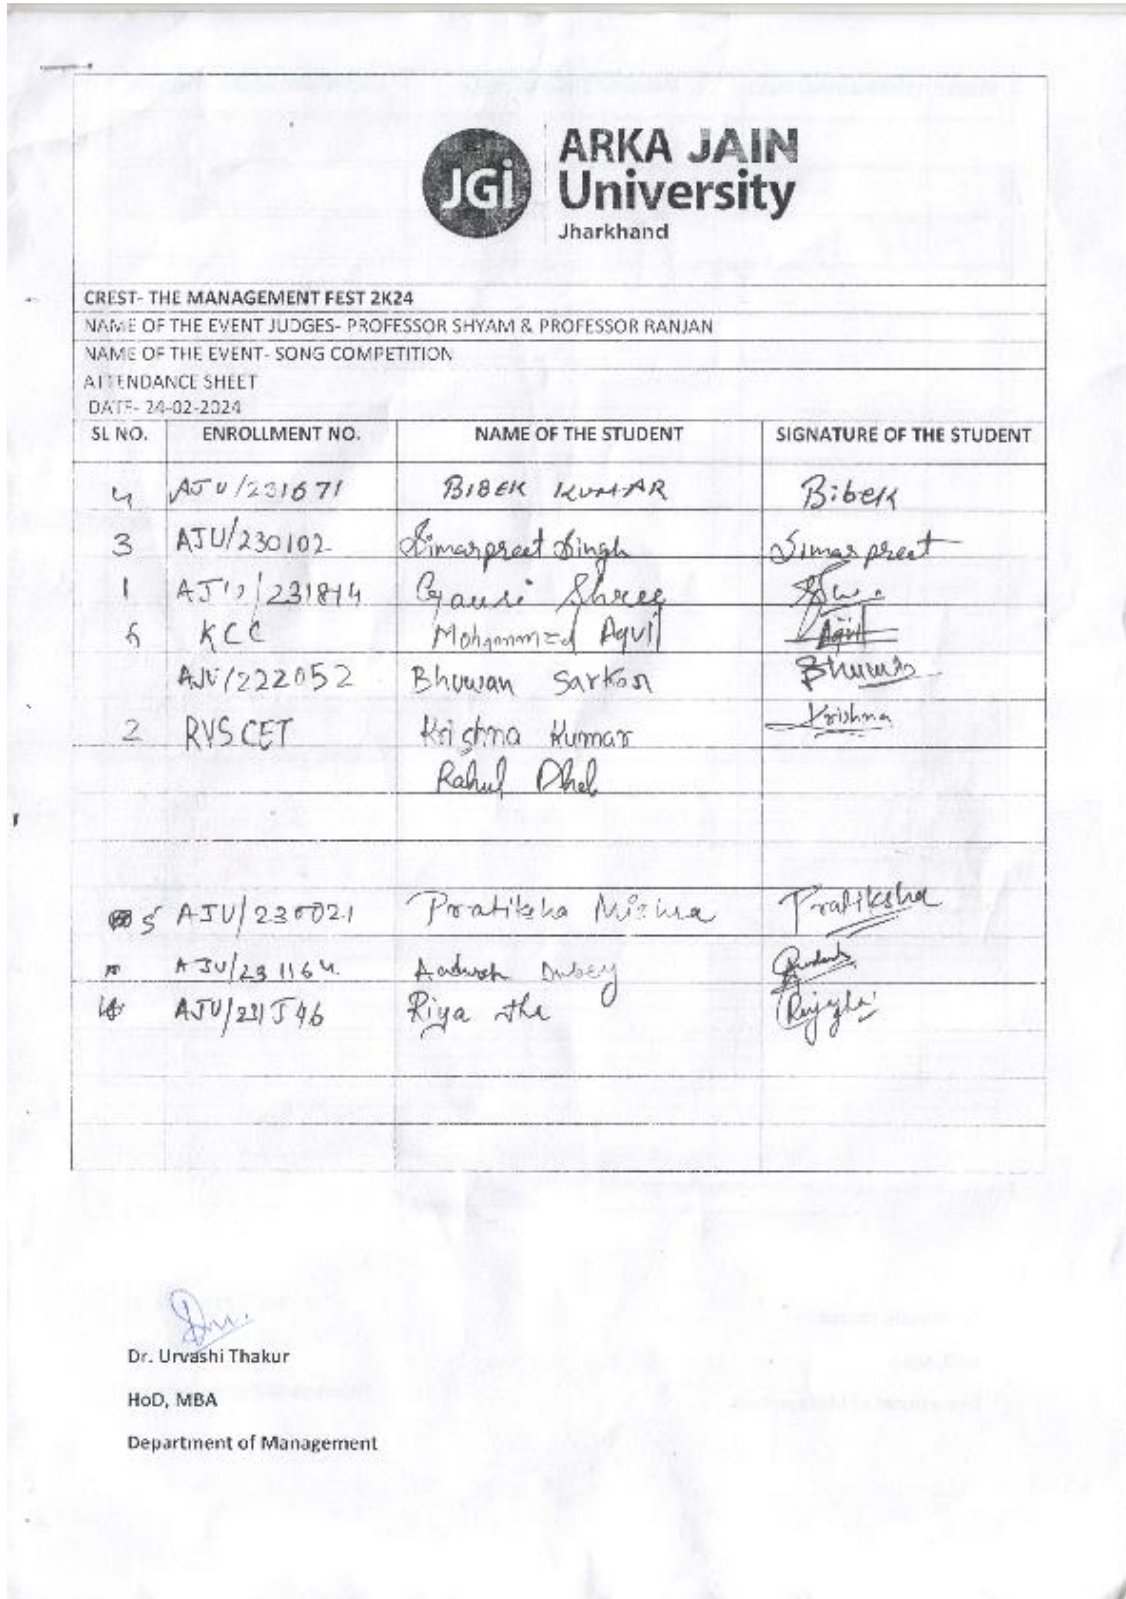 JGi
ARKA JAIN
University
Jharkhand
CREST- THE MANAGEMENT FEST 2K24
NAME OF THE EVENT JUDGES- PROFESSOR SHYAM & PROFESSOR RANJAN
NAME OF THE EVENT- SONG COMPETITION
ATTENDANCE SHEET
DATE- 24-02-2024
SL NO. ENROLLMENT NO. NAME OF THE STUDENT SIGNATURE OF THE STUDENT
4 AJU/231671 BIBEK KUMAR Bibek
3 AJU/230102 Simarpreet Singh Simarpreet
1 Gauri Shree
6 KCC Mohammed Aquil Aquil
AJU/222052 Bhuwan Sarkar
2 RVSCET Krishna Kumar Krishna
Rahul
5 AJU/230021 Pratiksha Mishra Pratiksha
AJU/231164 Dubey
Riya Jha
Dr. Urvashi Thakur
HoD, MBA
Department of Management